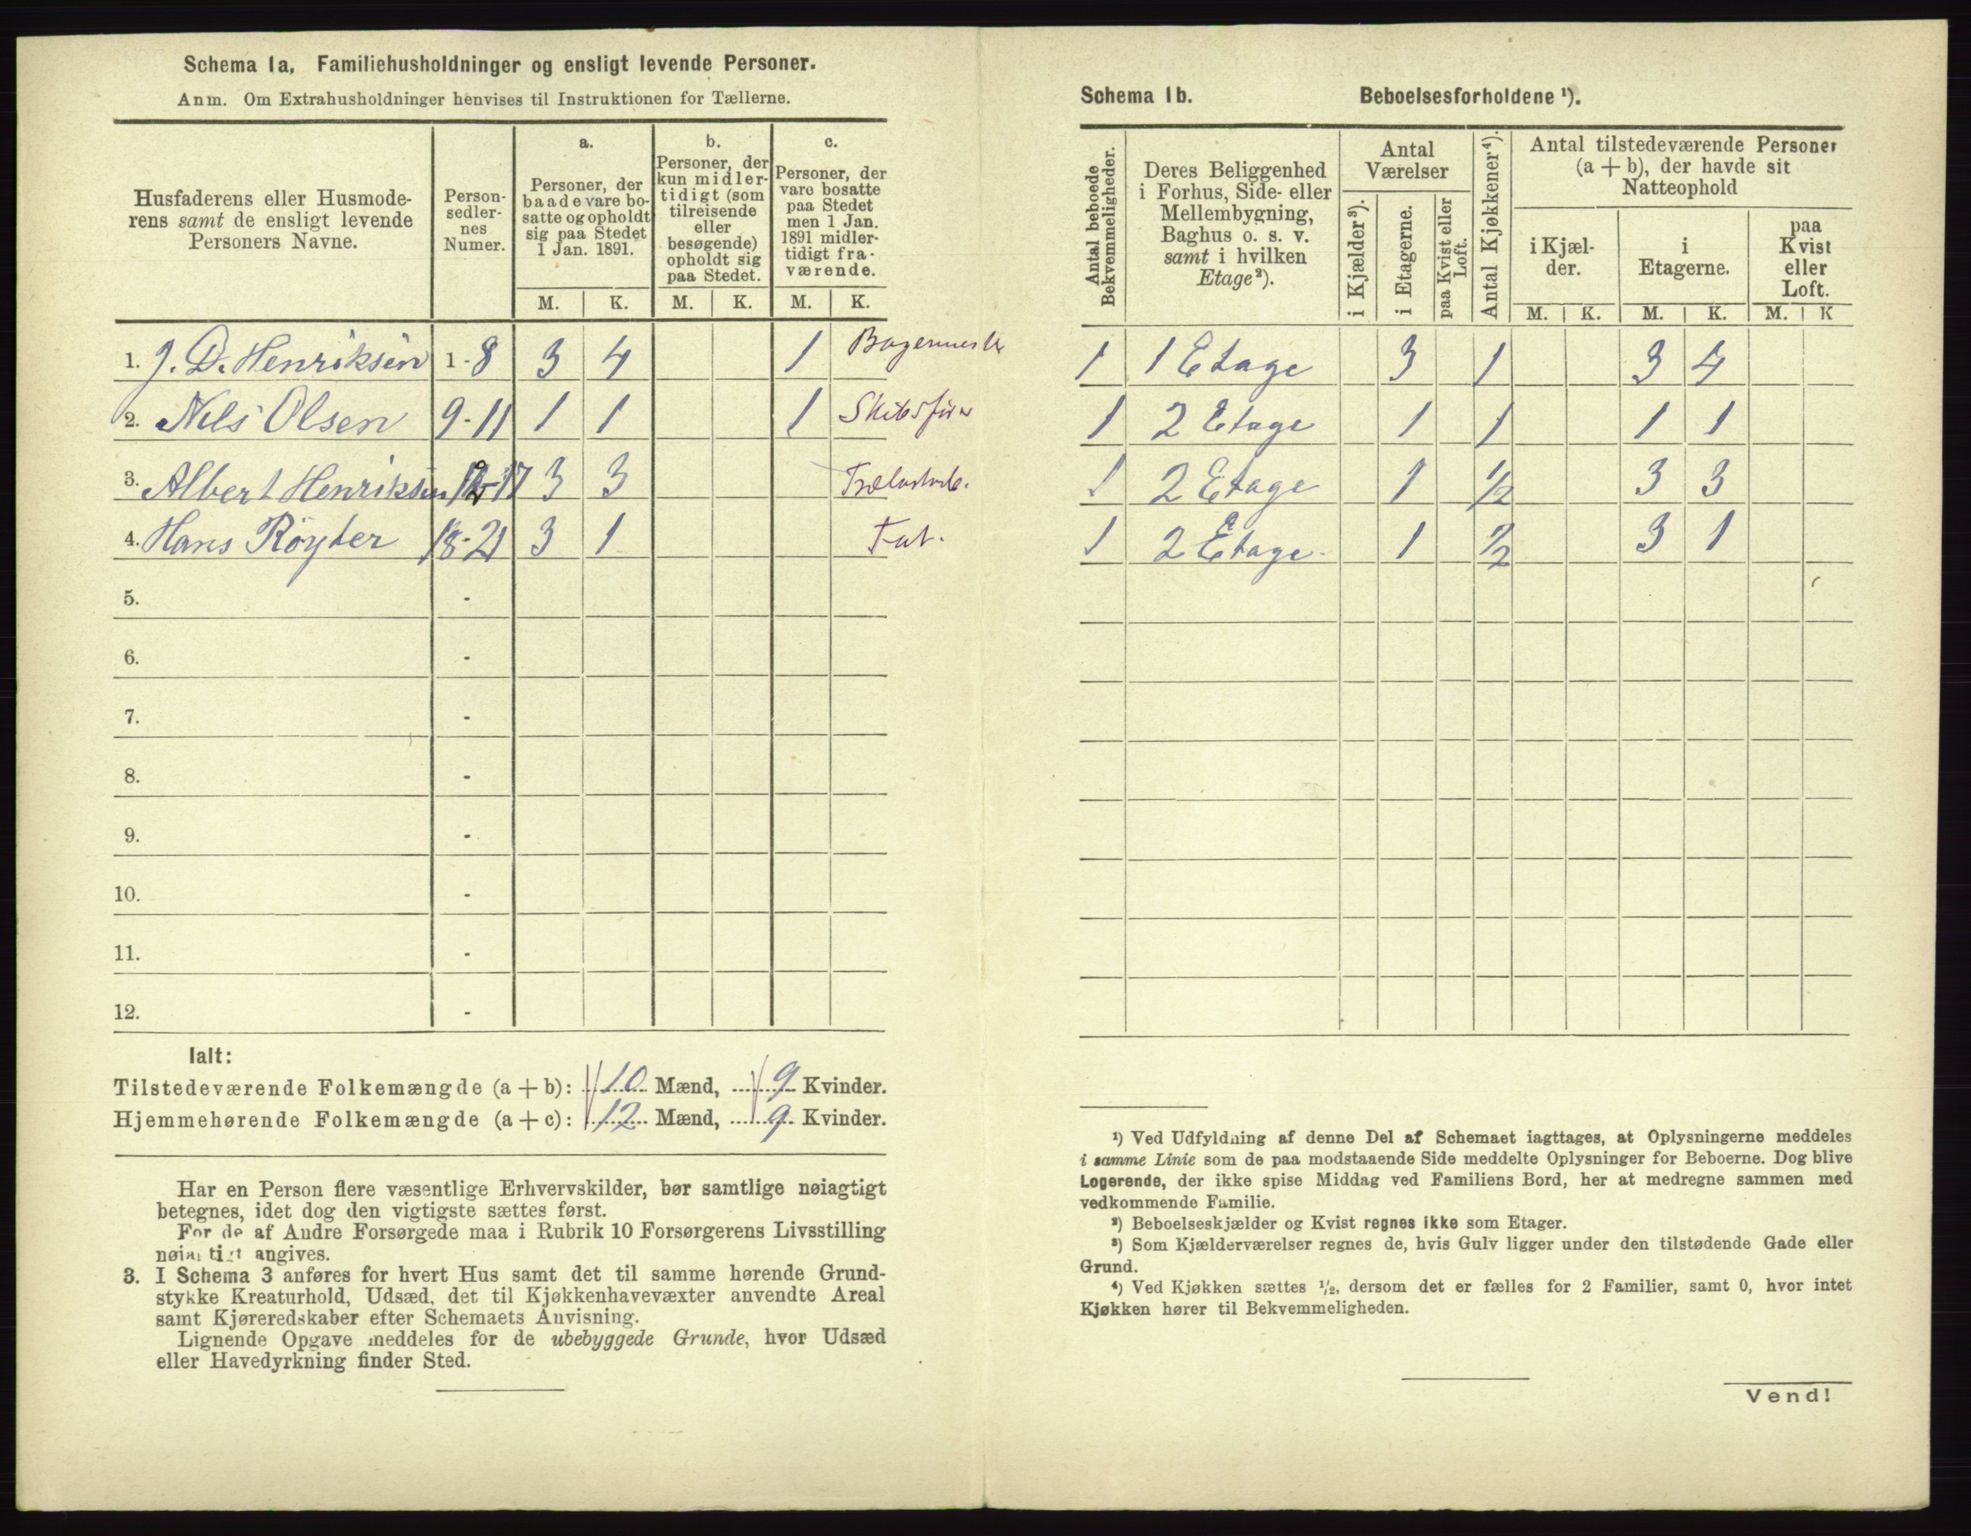 Schema 1a. Familiehusholdninger og ensligt levende Personer.
Anm. Om Extrahusholdninger henvises til Instruktionen for Tællerne.
Husfaderens eller Husmode-
rens samt de ensligt levende
Personers Navne.
Person-
sedler-
nes
Numer.
a.
Personer, der
baade vare bo-
satte og opholdt
sig paa Stedet
1 Jan. 1891.
b.
Personer, der
kun midler-
tidigt (som
tilreisende
eller
besøgende)
opholdt sig
paa Stedet.
c.
Personer, der
vare bosatte
paa Stedet
men 1 Jan.
1891 midler-
tidigt fra-
værende.
M. K. M. K. M. K.
1. J. D. Henriksen 1-8 3 4 1
2. Nils Olsen 9-11 1 1 1
3. Albert Henriksen 12-17 3 3
4. Hans Röyter 18-21 3 1 Fat.
5. -
6. -
7. -
8. -
9. -
10. -
11. -
12. -
Ialt:
Tilstedeværende Folkemængde (a + b): 10 Mænd, 9 Kvinder.
Hjemmehørende Folkemængde (a + c): 12 Mænd, 9 Kvinder.
Har en Person flere væsentlige Erhvervskilder, bør samtlige nøiagtigt
betegnes, idet dog den vigtigste sættes først.
For de af Andre Forsørgede maa i Rubrik 10 Forsørgerens Livsstilling
nøiagtigt angives.
3. I Schema 3 anføres for hvert Hus samt det til samme hørende Grund-
stykke Kreaturhold, Udsæd, det til Kjøkkenhavevæxter anvendte Areal
samt Kjøreredskaber efter Schemaets Anvisning.
Lignende Opgave meddeles for de ubebyggede Grunde, hvor Udsæd
eller Havedyrkning finder Sted.
Schema 1b. Beboelsesforholdene ¹).
Antal beboede
Bekvemmeligheder.
Deres Beliggenhed
i Forhus, Side- eller
Mellembygning,
Baghus o. s. v.
samt i hvilken
Etage²).
Antal
Værelser
i Kjælder³).
i Etagerne.
paa Kvist eller
Loft.
Antal Kjøkkener⁴).
Antal tilstedeværende Personer
(a + b), der havde sit
Natteophold
i Kjæl-
der.
i
Etagerne.
paa
Kvist
eller
Loft.
M. K. M. K. M. K
1 1 Etage 3 1 3 4
1 2 Etage 1 1 1 1
1 2 Etage 1 1/2 3 3
1 2 Etage 1 1/2 3 1
¹) Ved Udfyldning af denne Del af Schemaet iagttages, at Oplysningerne meddeles
i samme Linie som de paa modstaaende Side meddelte Oplysninger for Beboerne. Dog blive
Logerende, der ikke spise Middag ved Familiens Bord, her at medregne sammen med
vedkommende Familie.
²) Beboelseskjælder og Kvist regnes ikke som Etager.
³) Som Kjælderværelser regnes de, hvis Gulv ligger under den tilstødende Gade eller
Grund.
⁴) Ved Kjøkken sættes ½, dersom det er fælles for 2 Familier, samt 0, hvor intet
Kjøkken hører til Bekvemmeligheden.
Vend!